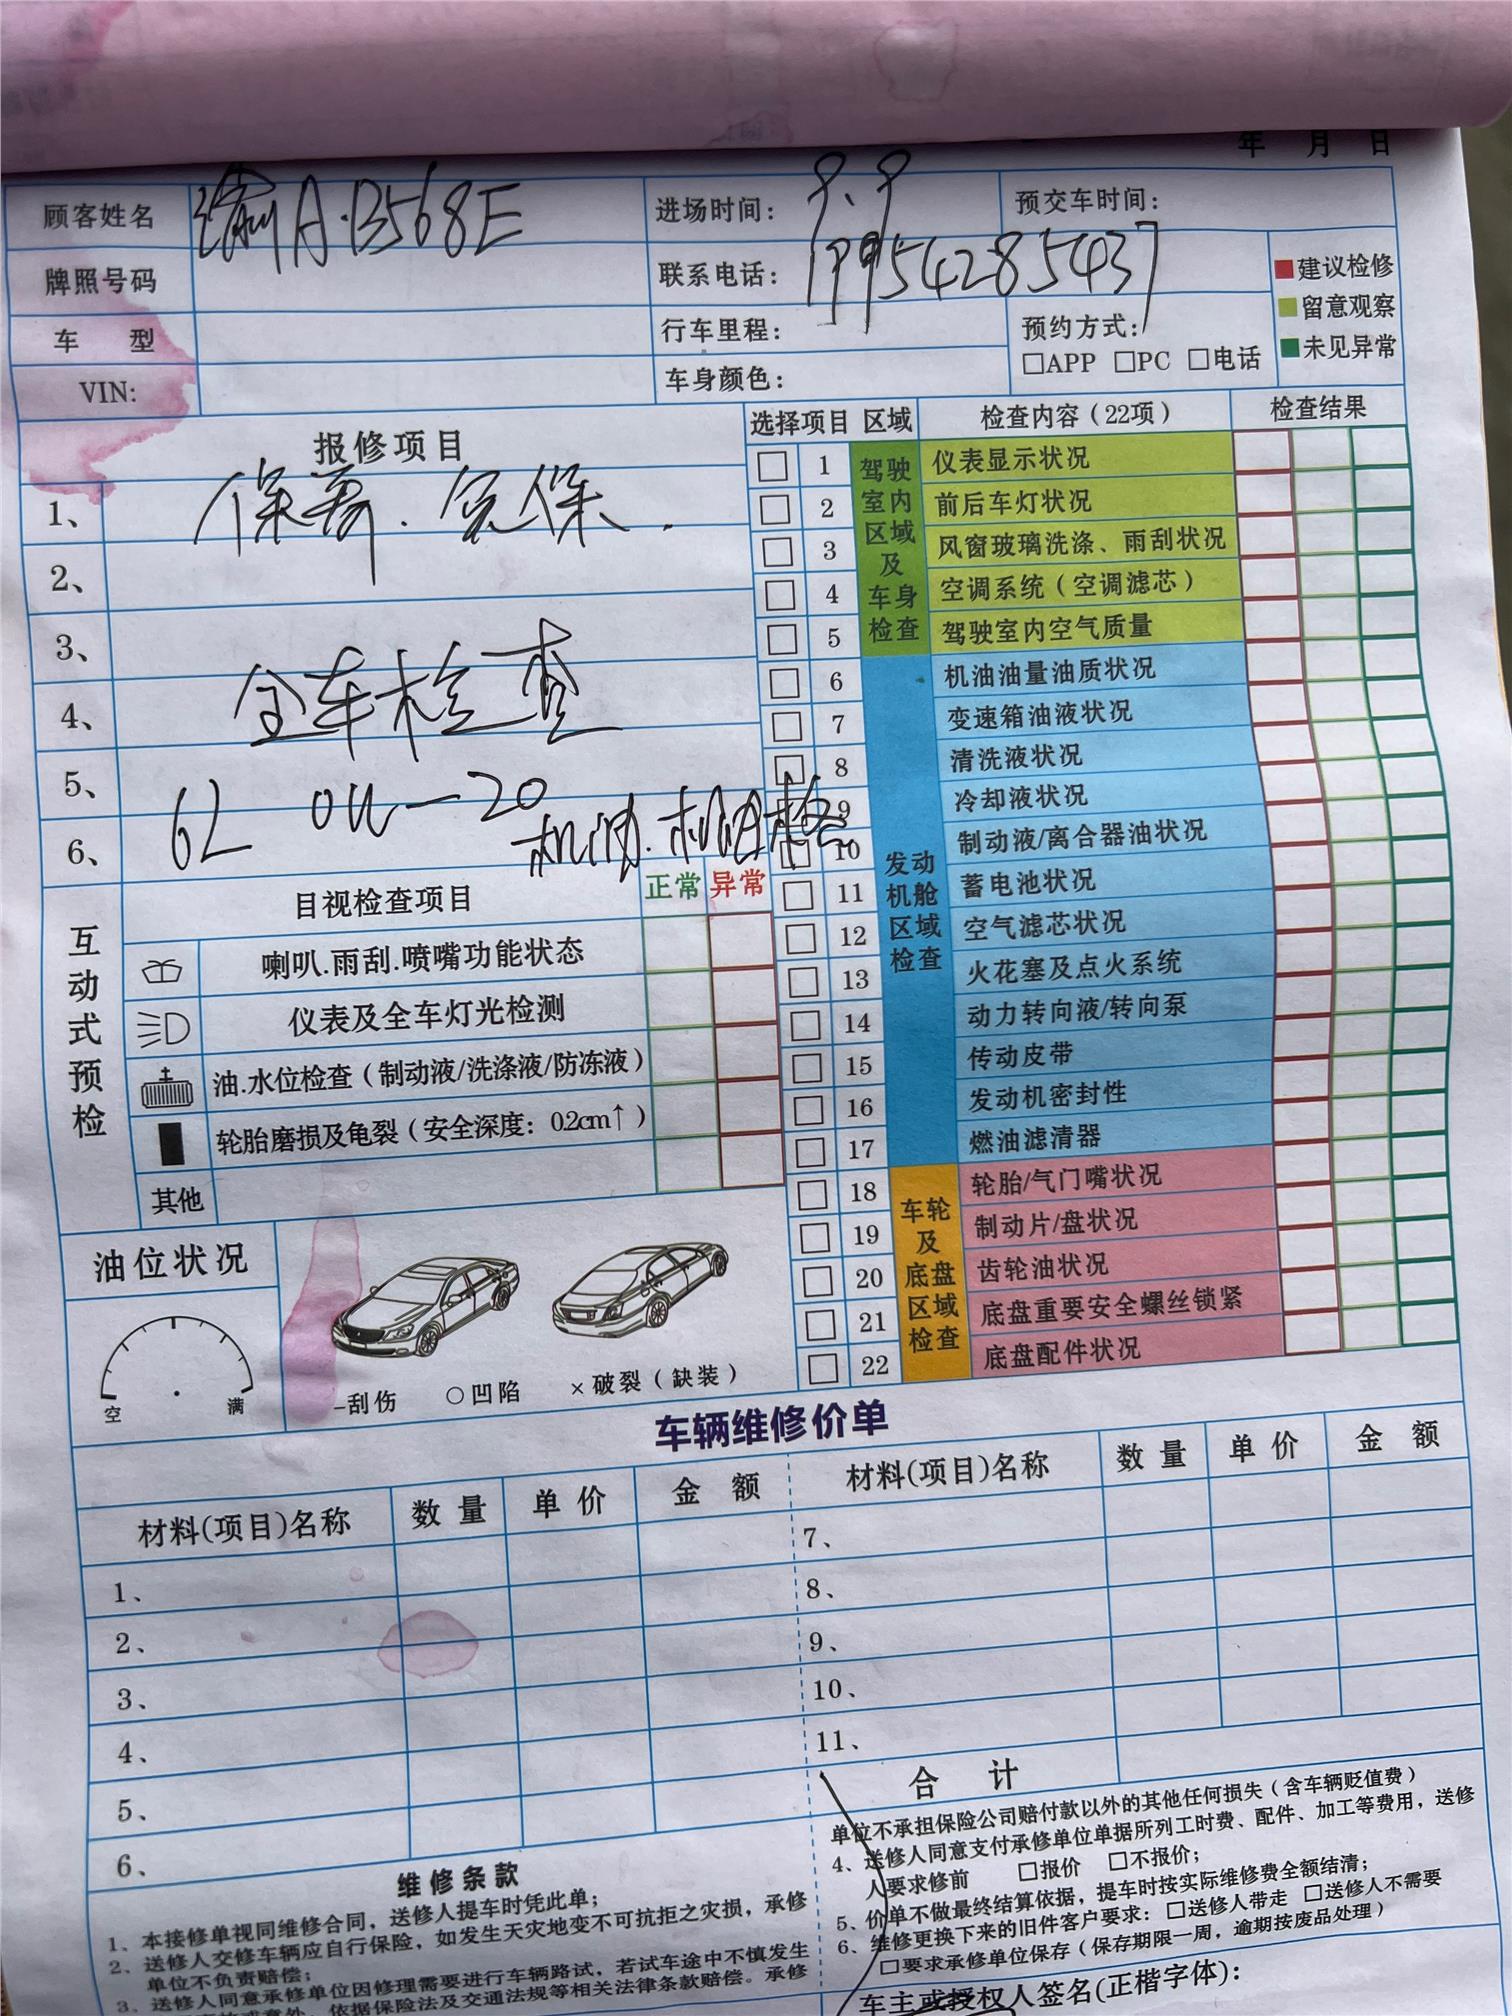 年 月 日
顾客姓名 渝A·B568E 进场时间: 9.9 预交车时间:
牌照号码 联系电话: 19954285437
■建议检修
■留意观察
■未见异常
车 型 行车里程: 预约方式:
□APP □PC □电话
VIN: 车身颜色:
报修项目
1、 保养.免保.
2、
3、
4、 全车检查
5、
6、 6L 0W-20 机油.机油格
选择项目 区域 检查内容(22项) 检查结果
驾驶室内区域及车身检查
□ 1 仪表显示状况
□ 2 前后车灯状况
□ 3 风窗玻璃洗涤、雨刮状况
□ 4 空调系统(空调滤芯)
□ 5 驾驶室内空气质量
发动机舱区域检查
□ 6 机油油量油质状况
□ 7 变速箱油液状况
□ 8 清洗液状况
□ 9 冷却液状况
□ 10 制动液/离合器油状况
□ 11 蓄电池状况
□ 12 空气滤芯状况
□ 13 火花塞及点火系统
□ 14 动力转向液/转向泵
□ 15 传动皮带
□ 16 发动机密封性
□ 17 燃油滤清器
车轮及底盘区域检查
□ 18 轮胎/气门嘴状况
□ 19 制动片/盘状况
□ 20 齿轮油状况
□ 21 底盘重要安全螺丝锁紧
□ 22 底盘配件状况
互动式预检
目视检查项目 正常 异常
喇叭.雨刮.喷嘴功能状态
仪表及全车灯光检测
油.水位检查(制动液/洗涤液/防冻液)
轮胎磨损及龟裂(安全深度: 0.2cm↑)
其他
油位状况
空 满
-刮伤 ○凹陷 ×破裂(缺装)
车辆维修价单
材料(项目)名称 数量 单价 金额 材料(项目)名称 数量 单价 金额
1、 7、
2、 8、
3、 9、
4、 10、
5、 11、
6、 合 计
维修条款
1、本接修单视同维修合同，送修人提车时凭此单；
2、送修人交修车辆应自行保险，如发生天灾地变不可抗拒之灾损，承修
单位不负责赔偿；
3、送修人同意承修单位因修理需要进行车辆路试，若试车途中不慎发生
依据保险法及交通法规等相关法律条款赔偿。承修
单位不承担保险公司赔付款以外的其他任何损失(含车辆贬值费)
4、送修人同意支付承修单位单据所列工时费、配件、加工等费用，送修
人要求修前 □报价 □不报价；
5、价单不做最终结算依据，提车时按实际维修费全额结清；
6、维修更换下来的旧件客户要求：□送修人带走 □送修人不需要
□要求承修单位保存(保存期限一周，逾期按废品处理)
车主或授权人签名(正楷字体):